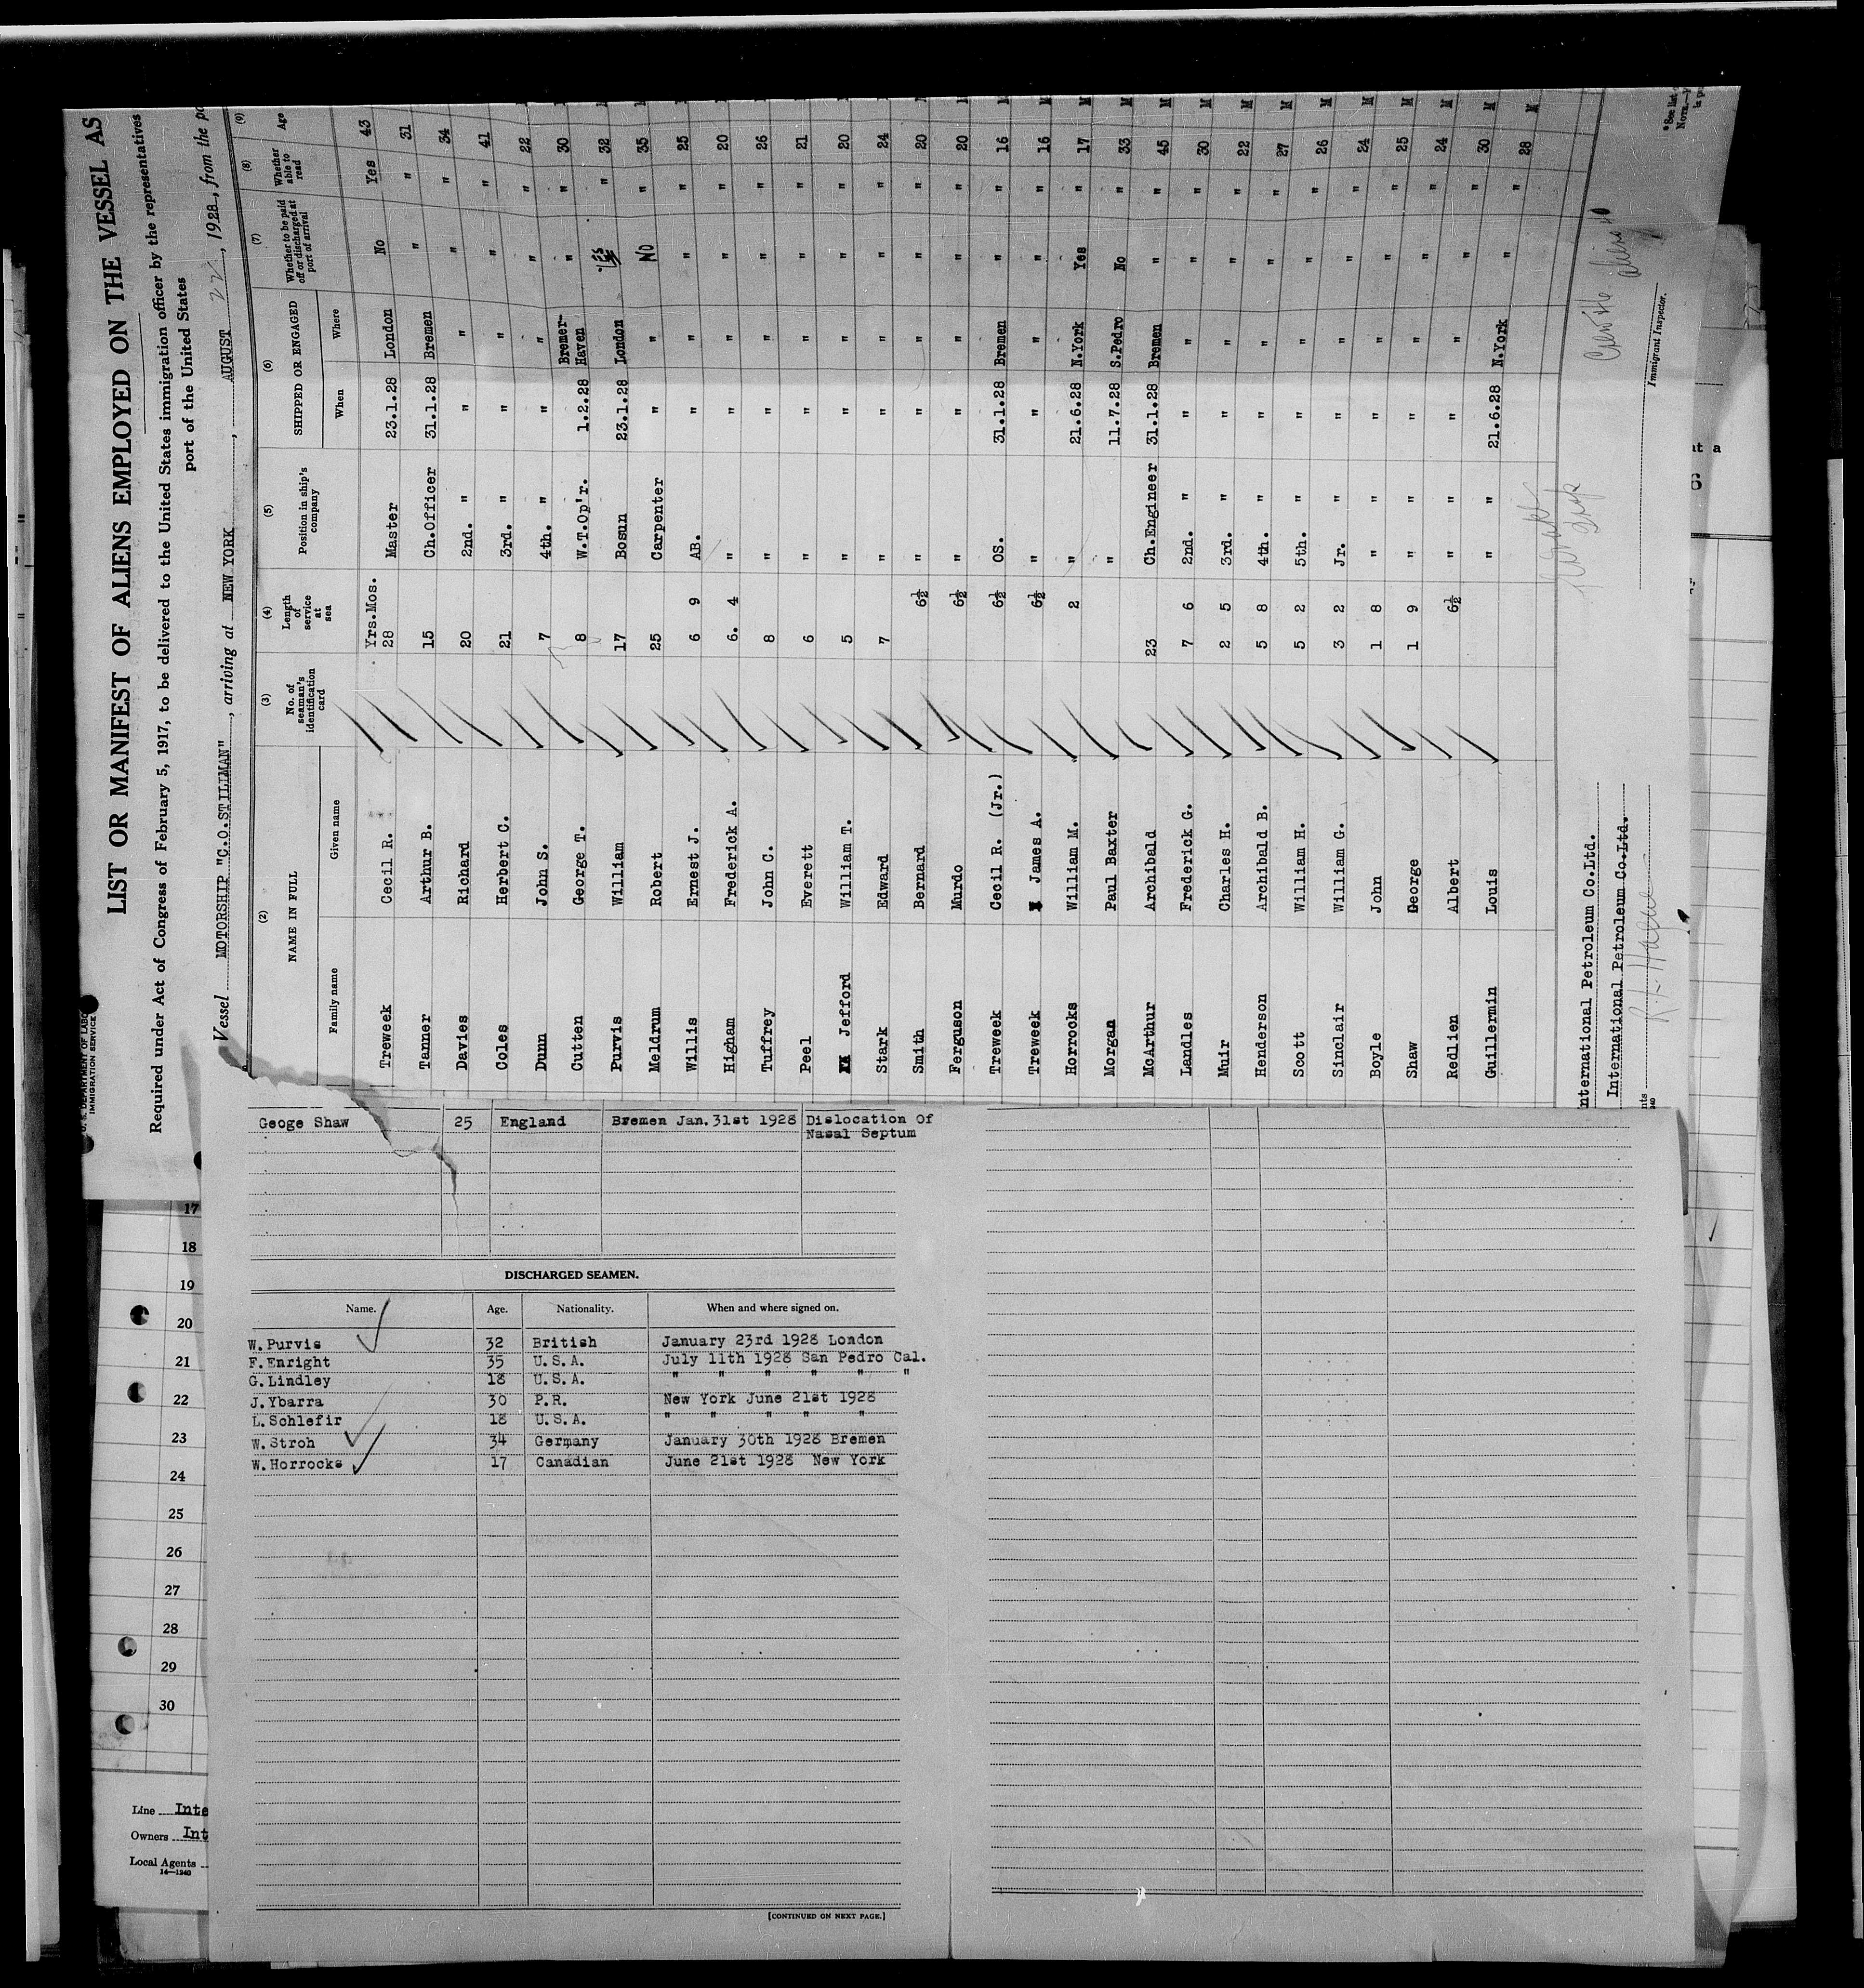 U. S. DEPARTMENT OF LABOR
IMMIGRATION SERVICE
LIST OR MANIFEST OF ALIENS EMPLOYED ON THE VESSEL AS
Required under Act of Congress of February 5, 1917, to be delivered to the United States immigration officer by the representatives
port of the United States
Vessel MOTORSHIP "C.O.STILLMAN", arriving at NEW YORK, AUGUST 22, 1928, from the po
(2) (3) (4) (5) (6) (7) (8) (9)
NAME IN FULL No. of seaman's identification card Length of service at sea Position in ship's company SHIPPED OR ENGAGED Whether to be paid off or discharged at port of arrival Whether able to read Age
Family name Given name When Where
Yrs.Mos.
Treweek Cecil R. 28 Master 23.1.28 London No Yes 43
Tanner Arthur B. 15 Ch.Officer 31.1.28 Bremen " " 31
Davies Richard 20 2nd. " " " " " 34
Coles Herbert C. 21 3rd. " " " " " 41
Dunn John S. 7 4th. " " " " " 22
Cutten George T. 8 W.T.Op'r. 1.2.28 Bremer-Haven " " 30
Purvis William 17 Bosun 23.1.28 London Yes " 32
Meldrum Robert 25 Carpenter " " No " 35
Willis Ernest J. 6 9 AB. " " " " 25
Higham Frederick A. 6. 4 " " " " " 20
Tuffrey John C. 8 " " " " " 26
Peel Everett 6 " " " " " 21
Jefford William T. 5 " " " " " 20
Stark Edward 7 " " " " " 24
Smith Bernard 6½ " " " " " 20
Ferguson Murdo 6½ " " " " " 20
Treweek Cecil R. (Jr.) 6½ OS. 31.1.28 Bremen " " 16
Treweek James A. 6½ " " " " " 16
Horrocks William M. 2 " 21.6.28 N.York Yes " 17
Morgan Paul Baxter " 11.7.28 S.Pedro No " 33
McArthur Archibald 23 Ch.Engineer 31.1.28 Bremen " " 45
Landles Frederick G. 7 6 2nd. " " " " " 30
Muir Charles H. 2 5 3rd. " " " " " 22
Henderson Archibald B. 5 8 4th. " " " " " 27
Scott William H. 5 2 5th. " " " " " 26
Sinclair William G. 3 2 Jr. " " " " 24
Boyle John 1 8 " " " " " 25
Shaw George 1 9 " " " " " 24
Redlien Albert 6½ " " " " " 30
Guillermin Louis " 21.6.28 N.York " " 28
International Petroleum Co.Ltd.
International Petroleum Co.Ltd.
Immigrant Inspector.
*See list
Geoge Shaw 25 England Bremen Jan.31st 1928 Dislocation Of
Nasal Septum
DISCHARGED SEAMEN.
Name. Age. Nationality. When and where signed on.
W.Purvis 32 British January 23rd 1928 London
F.Enright 35 U.S.A. July 11th 1928 San Pedro Cal.
G.Lindley 18 U.S.A. " " " " " "
J.Ybarra 30 P.R. New York June 21st 1928
L.Schlefir 18 U.S.A. " " " " "
W.Stroh 34 Germany January 30th 1928 Bremen
W.Horrocks 17 Canadian June 21st 1928 New York
[CONTINUED ON NEXT PAGE.]
17
18
19
20
21
22
23
24
25
26
27
28
29
30
Line Inte
Owners Int
Local Agents
14—1240